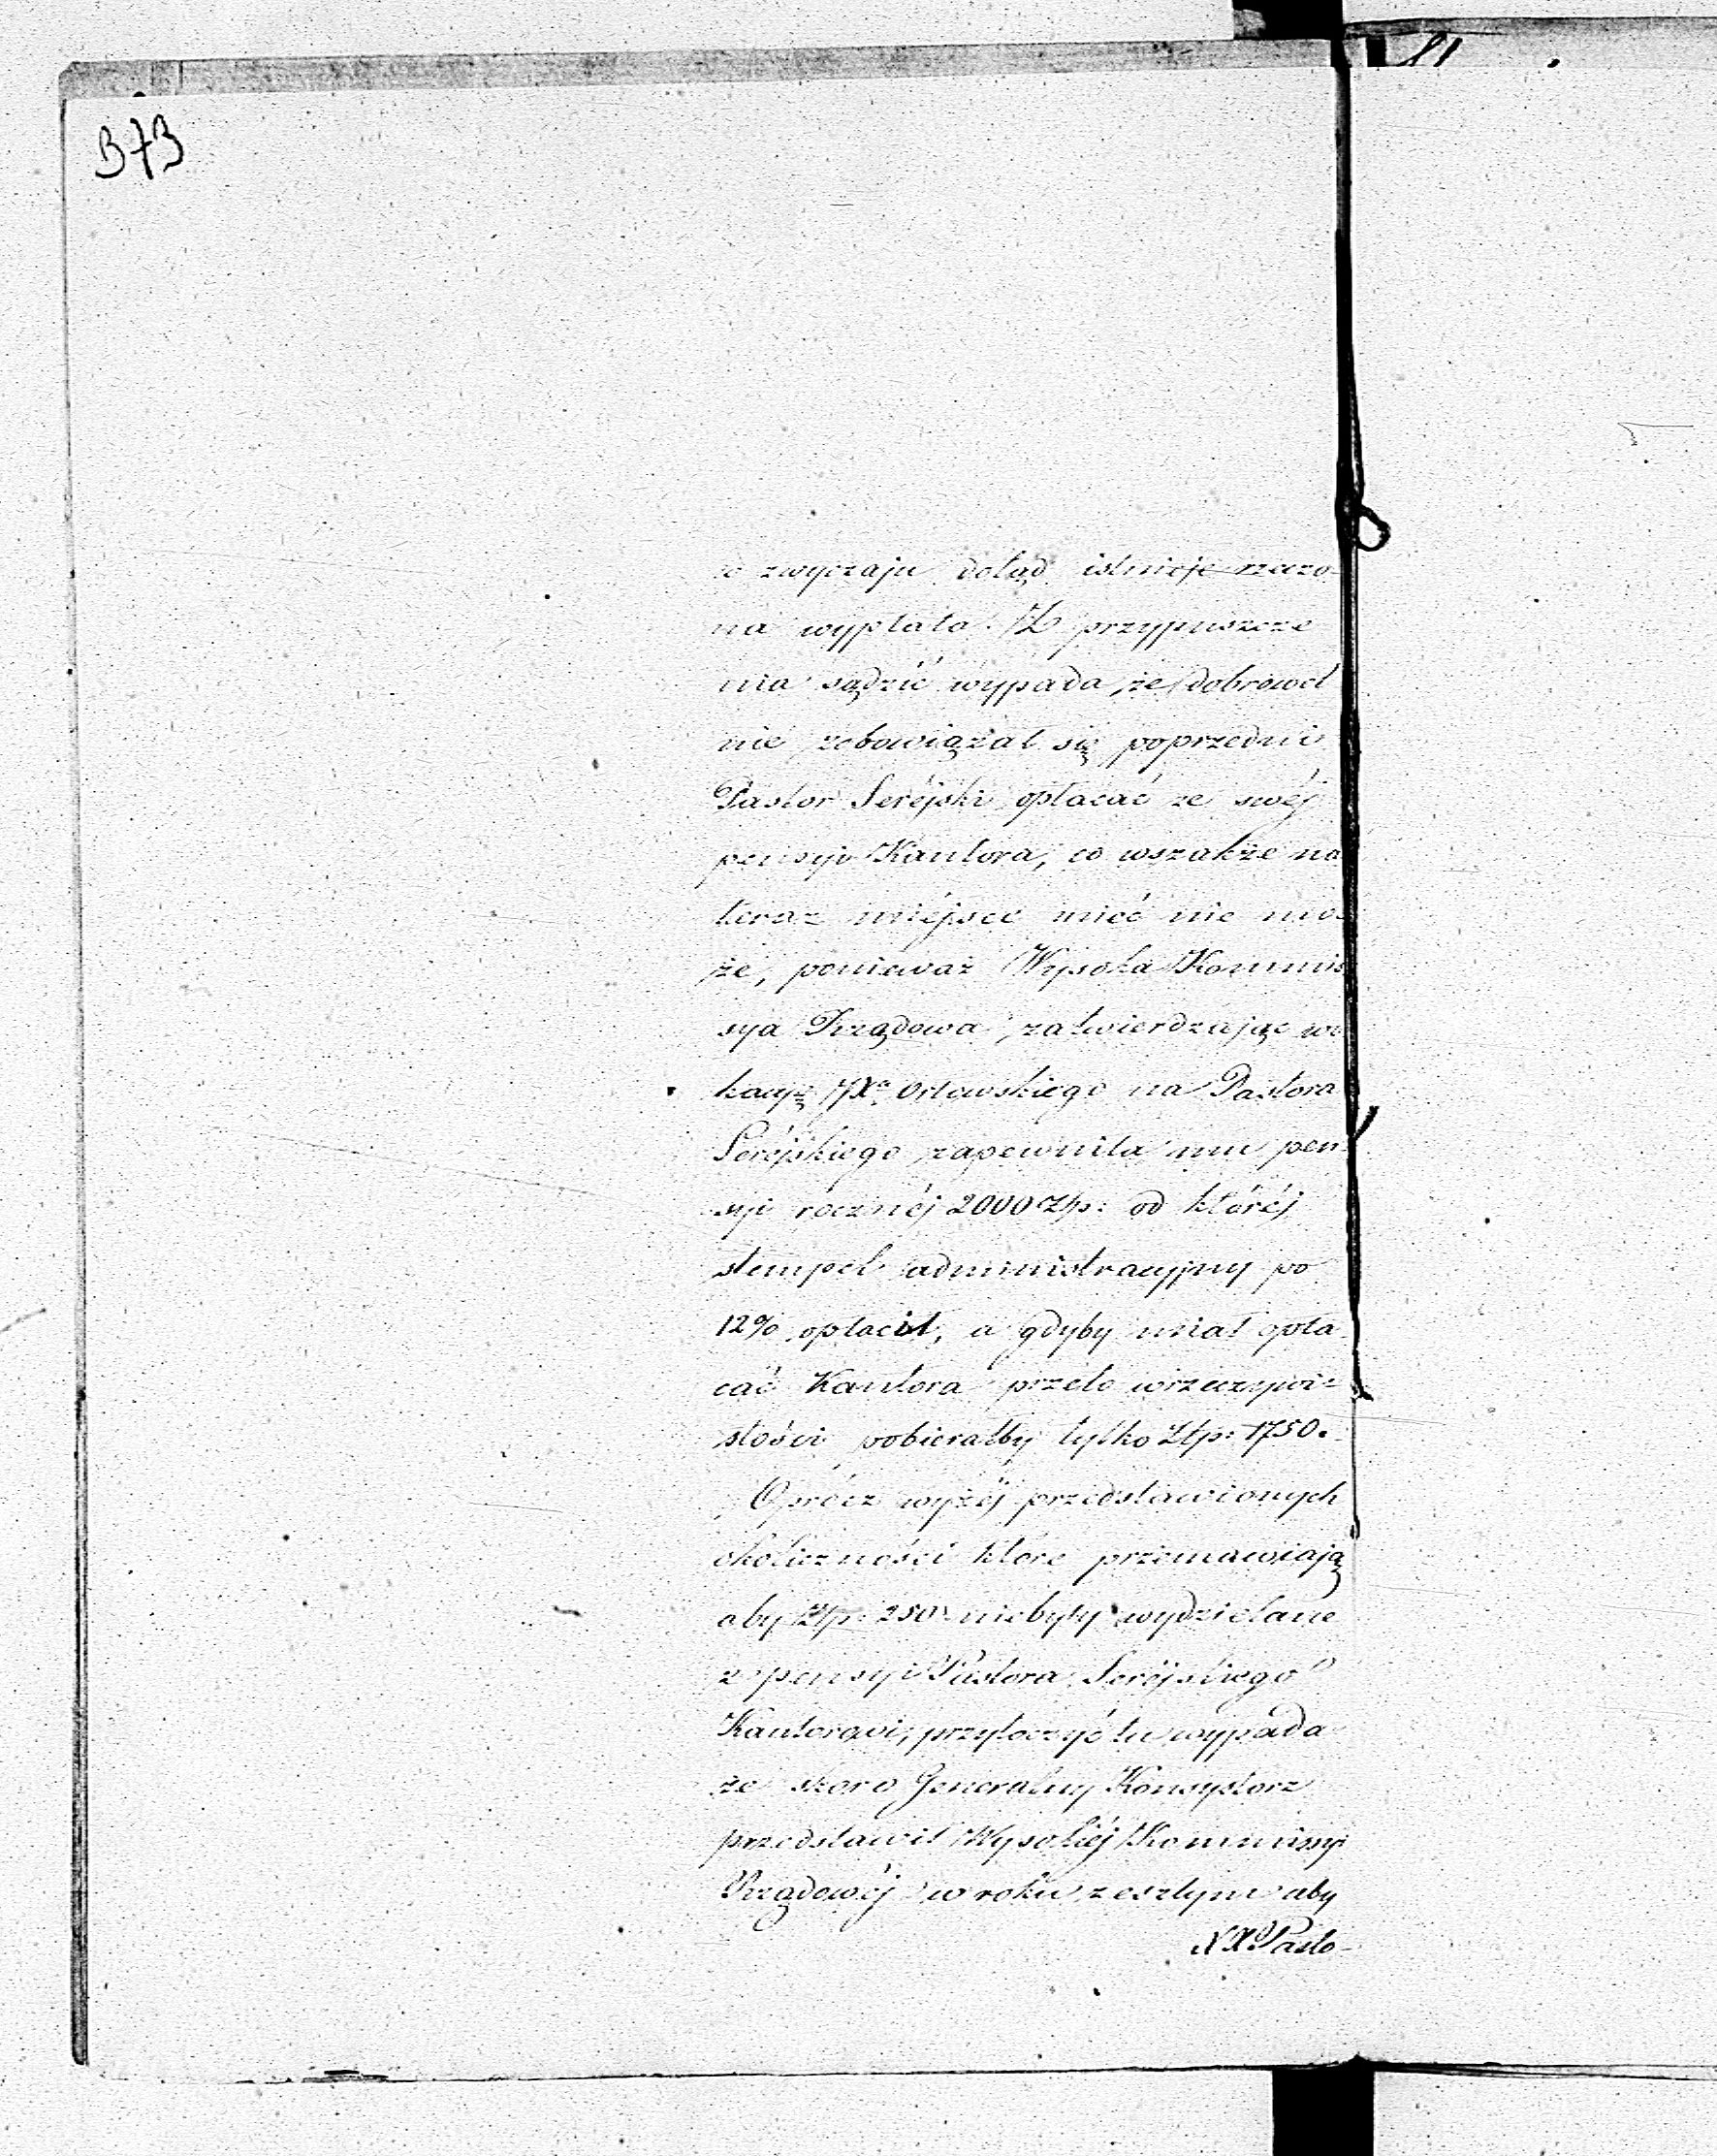 373
zwyczaju dotąd istnieje rzeczo-
na wypłata. Z przypuszcze
nia sądzić wypada, że dobrowol
nie zobowiązał się poprzedni
Pastor Seréjski opłacać ze swéj
pensyi Kantora, co wszakże na
teraz miéjsce mieć nie mo-
że, ponieważ Wysoka Kommis
sya Rządowa, zatwierdzając wo
kacyą JX Orłowskiego na Pastora
Seréjskiego zapewniła mu pen-
syi rocznéj 2000 Złp: od któréj
stempel administracyjny po
12% opłacił, a gdyby miał opła
cać Kantora przeto wrzeczywi-
stości pobierałby tylko Złp: 1750.
Oprócz wyżéj przedstawionych
okoliczności które przemawiają
aby Złp: 250 niebyły wydzielane
z pensyi Pastora Seréjskiego
Kantorowi, przytoczyć tu wypada
że skoro Generalny Konsystorz
przedstawił Wysokiéj Kommissyi
Rządowéj w roku zeszłym aby
XX Pasto-